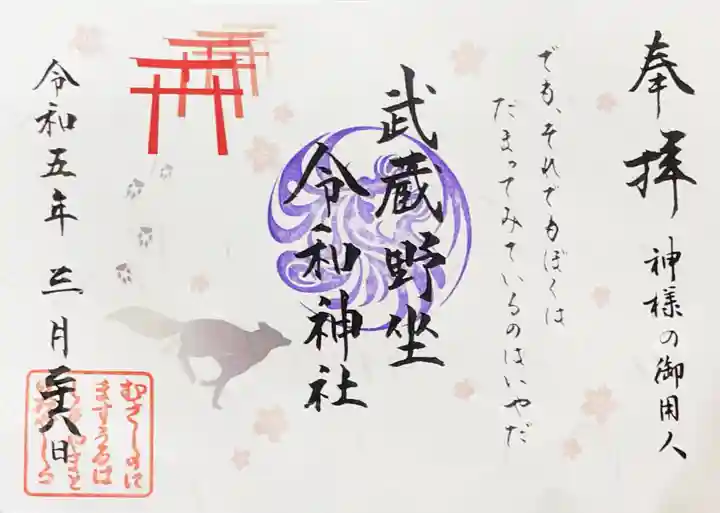 奉拝
神様の御用人
でも、それでもぼくは
だまってみているのはいやだ
武蔵野坐
令和神社
令和五年 三月二十八日
むさしのに
ますうるは
しきやまと
のみやしろ